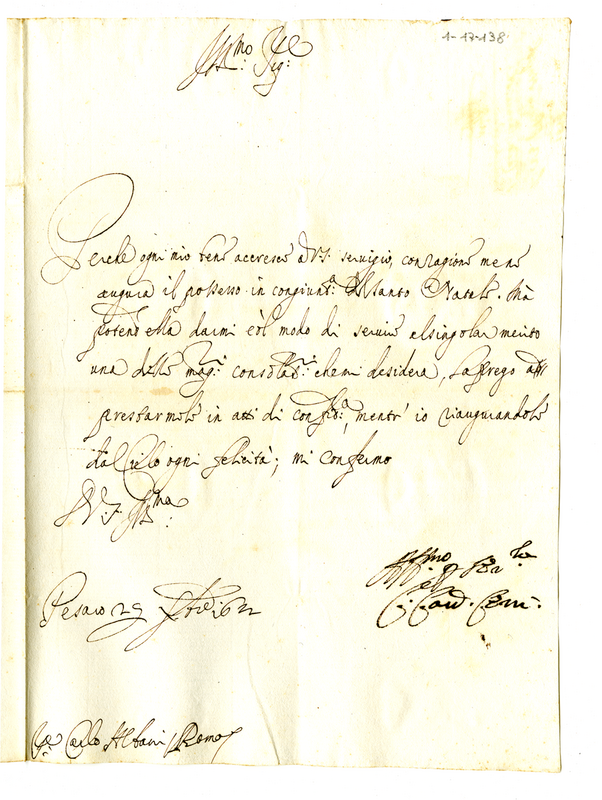 1-17-138
Ill.mo Sig.re
Perche ogni mio bene accresce a V.S. servigio, con ragione mene
augura il possesso in congiunt.a del santo Natale. Mà
potend' ella darmi cò'l modo di servire al singolar merito
una delle mag.ri consolat.ni che mi desidera, la prego
prestarmele in atti di confid.a, mentr' io riaugurandole
dal Cielo ogni felicità; mi confermo
D V. S. Ill.ma
Aff.mo
Pesaro 29
C. Card.
Carlo Albani Roma